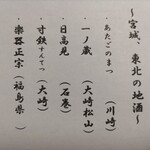 ～宮城、東北の地酒～
・あたごのまつ
（川崎）
・一ノ蔵
（大崎松山）
・日高見
（石巻）
・寸鉄すんてつ
（大崎）
・楽器正宗
（福島県）